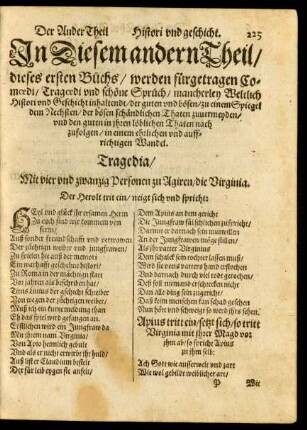 Der Ander Theil Histori vnd geschicht. 225
In Diesem andern Theil/
dieses ersten Buchs/ werden fürgetragen Co-
moedi/ Tragoedi vnd schöne Sprüch/ mancherley Weltlich
Histori vnd Geschicht inhaltendt/ der guten vnd bösen/ zu einem Spiegel
dem Nechsten/ der bösen schändtlichen Thaten zuuermeyden/
vnd den guten in jhren löblichen Thaten nach
zufolgen/ in einem ehrlichen vnd auff-
richtigen Wandel.
Tragedia/
Mit vier vnd zwantzig Personen zu Agiren/ die Virginia.
Der Herolt trit ein/ neigt sich vnd spricht:
HEyl vnd glück jhr ersamen Herrn
Ja euch sind wir kommen von
fern/
Auß sonder freund schafft vnd vertrawen
Der züchtigen weiber/ vnd jungfrawen/
Zu spielen hie auff der
Ein warhafft geschehene histori/
Zu Rom in der mächtigen statt
Vor jahren als beschriben hat/
Titus Liuius der geschicht schreiber
Von wegen der züchtigen weiber/
Muß ich ein kurtze meldung than
Eh das spiel wird gefangen an.
Erstlichen wird ein Jungfraw da
Mit jhrem namn Virginia/
Von Apio heimlich gebült
Vnd als er nicht erwürbt jhr huld/
Auß lüster Claudium bestelt
Der sie leib eygen sie anfelt/
Dem Apius an dem gericht
Die Jungfraw fäl schlichen zuspricht/
Darmit er darnach sein mutwillen
An der Jungfrawen mög erfüllen/
Als jhr vatter Virginius
Dem schalck sein tochter lassen muß/
Wird sie von vatters hand erstochen
Vnd darnach durch viel redt gerochen/
Deß soll niemand erschrecken nicht
Dan alle ding sein zugericht/
Daß keim menschen kan schad geschehen
Nun hört vnd schweigt so werd jhrs sehen.
Apius tritt ein/ setzt sich/ so tritt
Virginia mit jhrer Magd vor
jhm ab/ so spriche Apius
zu jhm selb:
Ach Gott wie ausserwelt vnd zart
Wie wol gebildt weiblicher art/
P Wie